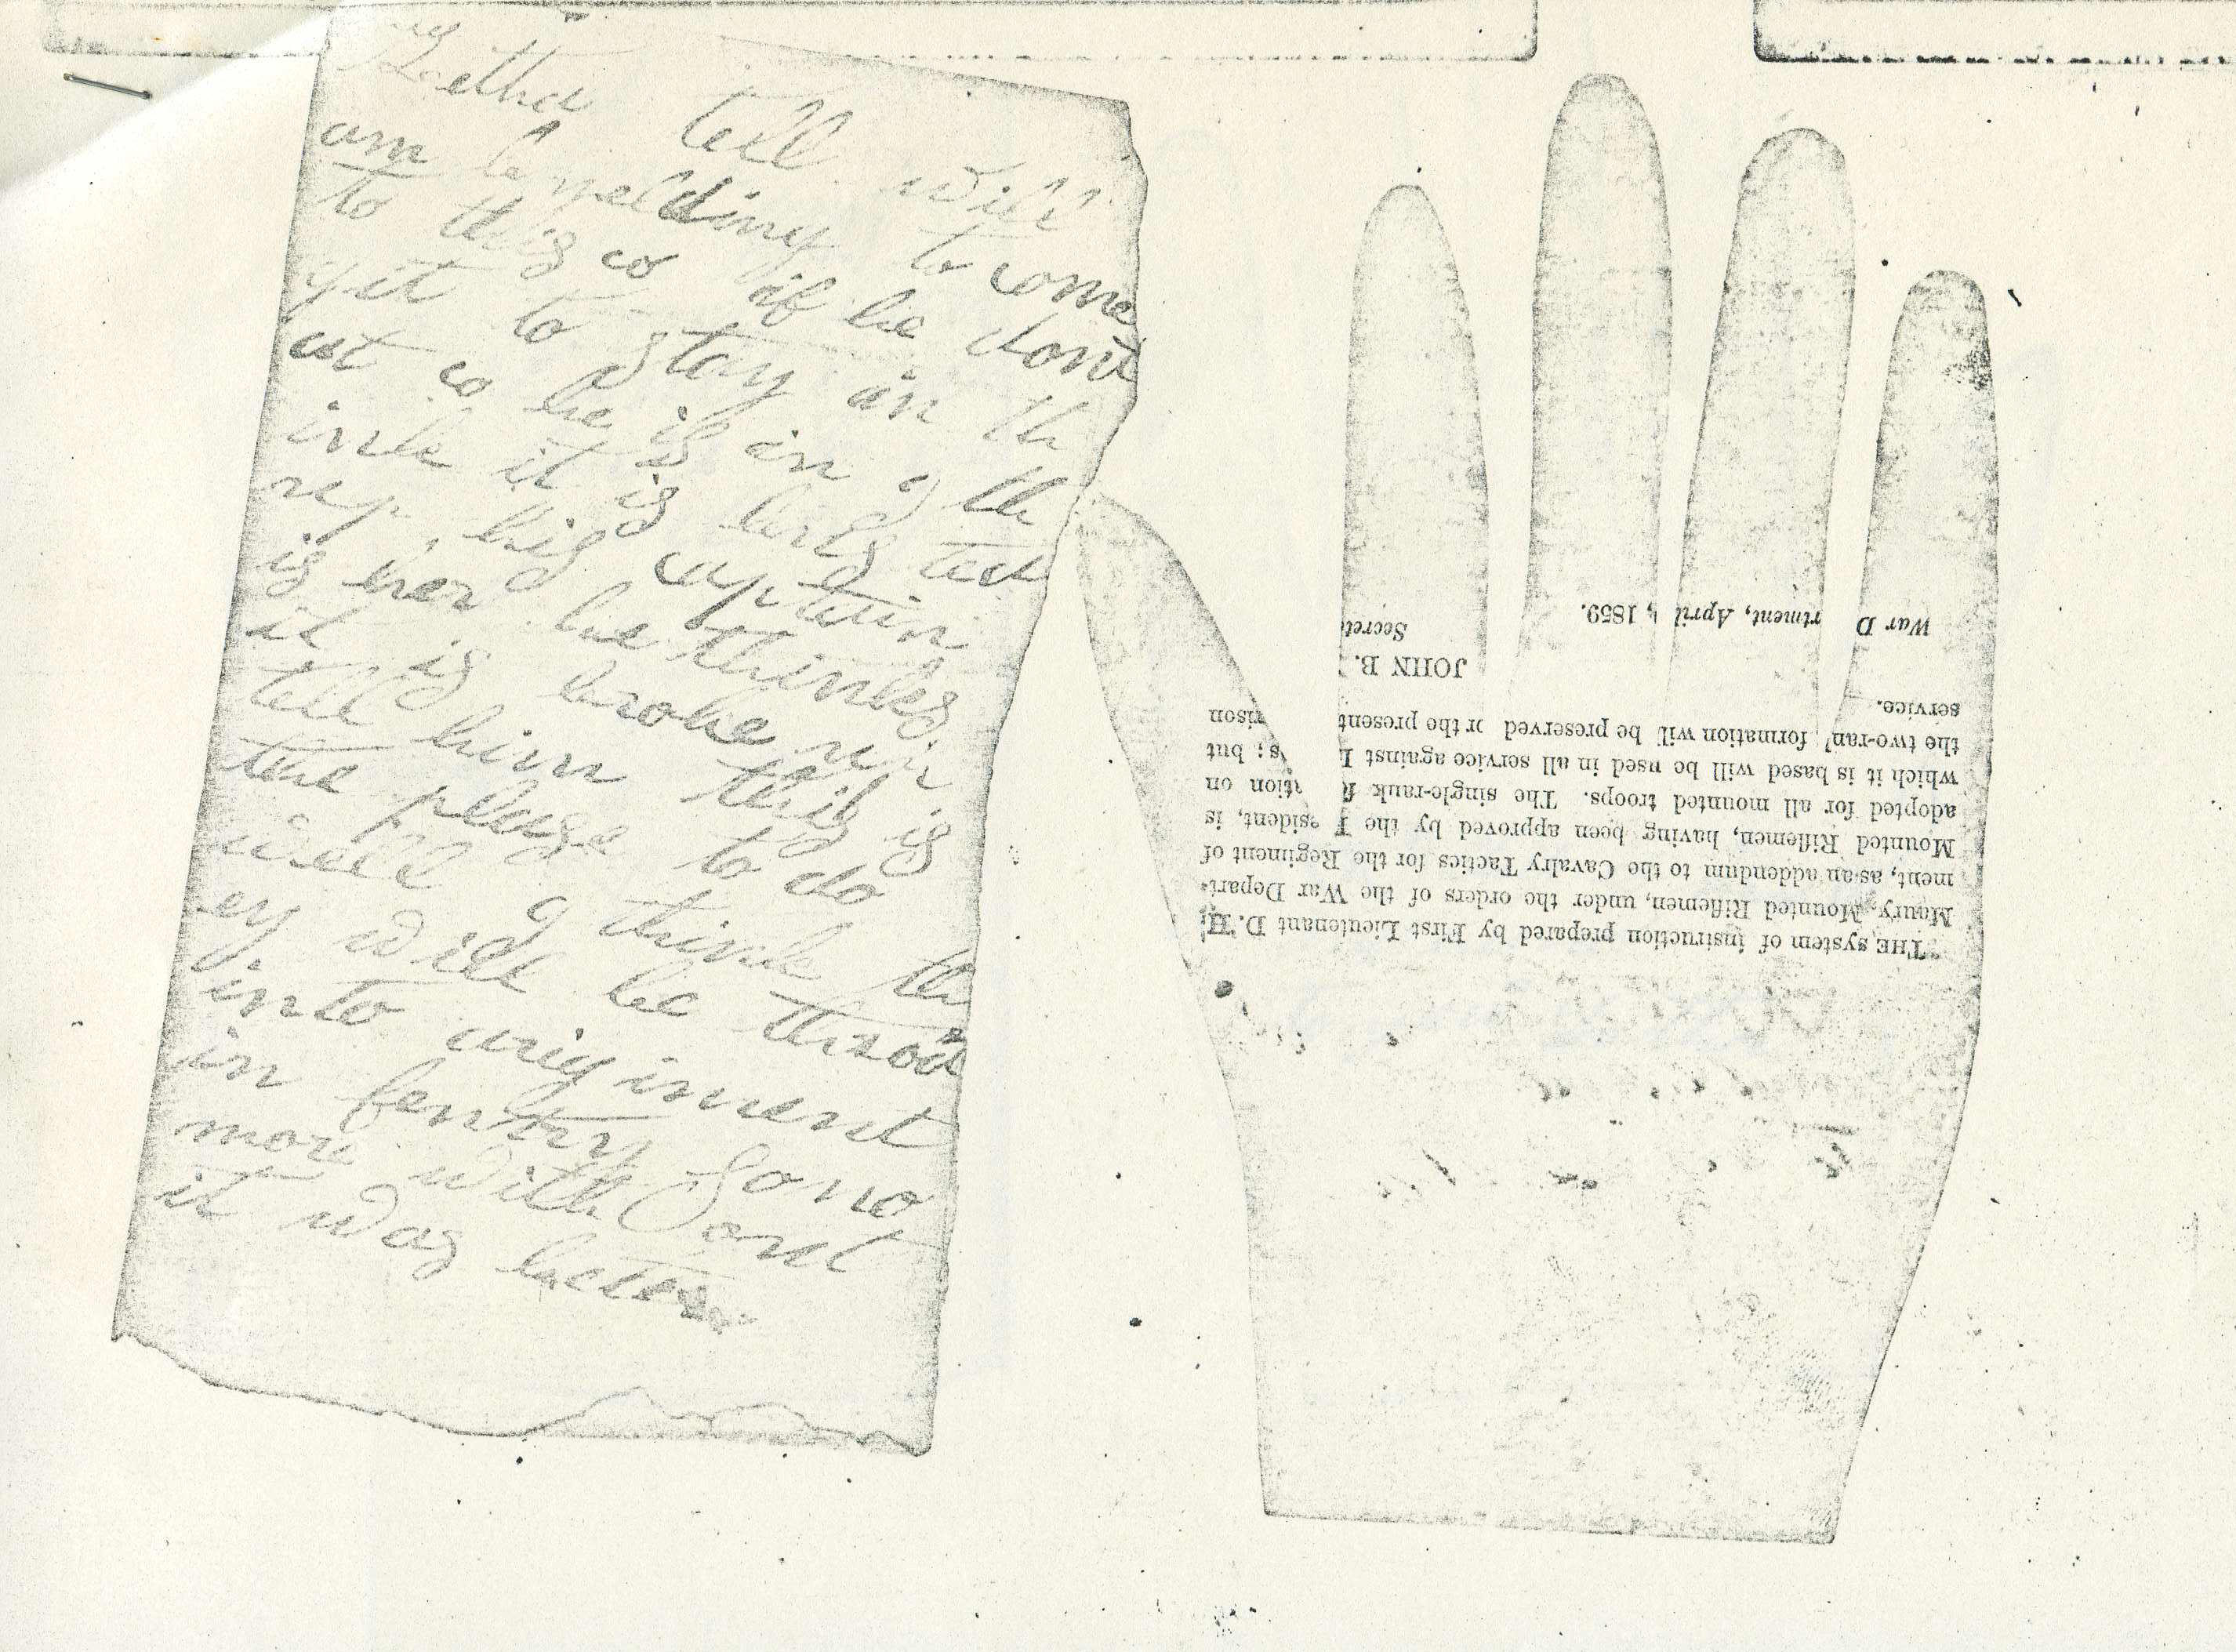 tell will
am to come
to this co if he dont
git to stay in th
at co he is in I th
ink it is
his captain
is her he thinks
it is broke up
tell him this is
the plase to do
well I think th
ey will be throd
into
in fentry So no
more with
it was better
THE system of instruction prepared by First Lieutenant D. H.
Maury, Mounted Riflemen, under the orders of the War Depart-
ment, as an addendum to the Cavalry Tactics for the Regiment of
Mounted Riflemen, having been approved by the esident, is
adopted for all mounted troops. The single-rank f ation on
which it is based will be used in all service against I s; but
the two-ran formation will be preserved or the present rison
service.
JOHN B.
Secret
War D rtment, April , 1859.